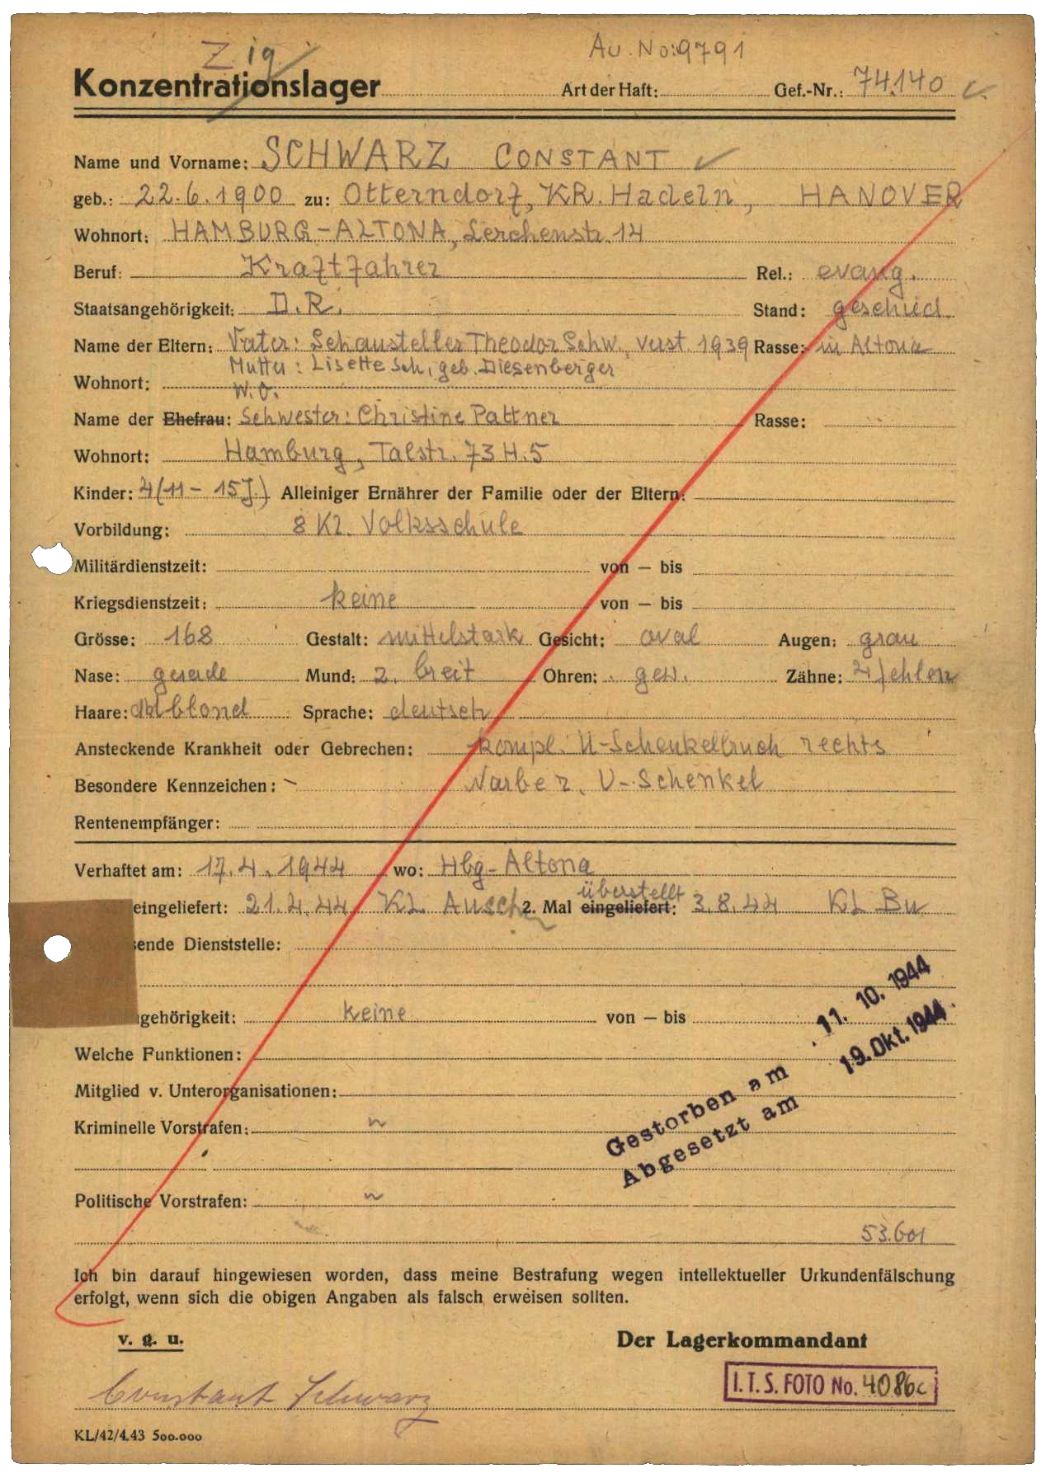 Zig
Au. No: 9791
Konzentrationslager Art der Haft: Gef.-Nr.: 74.140
Name und Vorname: SCHWARZ CONSTANT
geb.: 22.6.1900 zu: Otterndorf, KR. Hadeln, HANOVER
Wohnort: HAMBURG-ALTONA, Lerchenstr. 14
Beruf: Kraftfahrer Rel.: evang.
Staatsangehörigkeit: D.R. Stand: geschied.
Name der Eltern: Vater: Schausteller Theodor Schw., verst. 1939 Rasse: in Altona
Mutter: Lisette Sch, geb. Diesenberger
Wohnort: W.O.
Name der Ehefrau: Schwester: Christine Pattner Rasse:
Wohnort: Hamburg, Talstr. 73 H.5
Kinder: 4 (11 - 15 J.) Alleiniger Ernährer der Familie oder der Eltern:
Vorbildung: 8 Kl. Volksschule
Militärdienstzeit: von — bis
Kriegsdienstzeit: keine von — bis
Grösse: 168 Gestalt: mittelstark Gesicht: oval Augen: grau
Nase: gerade Mund: z. breit Ohren: gew. Zähne: 4 fehlen
Haare: blond Sprache: deutsch
Ansteckende Krankheit oder Gebrechen: kompl. U-Schenkelbruch rechts
Besondere Kennzeichen: Narbe r. U-Schenkel
Rentenempfänger:
Verhaftet am: 17.4.1944 wo: Hbg-Altona
überstellt
eingeliefert: 21.4.44 KL. Ausch. 2. Mal eingeliefert: 3.8.44 KL Bu
sende Dienststelle:
gehörigkeit: keine von — bis
11. 10. 1944
Welche Funktionen:
19. Okt. 1944
Mitglied v. Unterorganisationen:
Gestorben am
Kriminelle Vorstrafen:
Abgesetzt am
Politische Vorstrafen:
53.601
Ich bin darauf hingewiesen worden, dass meine Bestrafung wegen intellektueller Urkundenfälschung
erfolgt, wenn sich die obigen Angaben als falsch erweisen sollten.
v. g. u. Der Lagerkommandant
I.T.S. FOTO No. 4086c
Constant Schwarz
KL/42/4.43 500.000